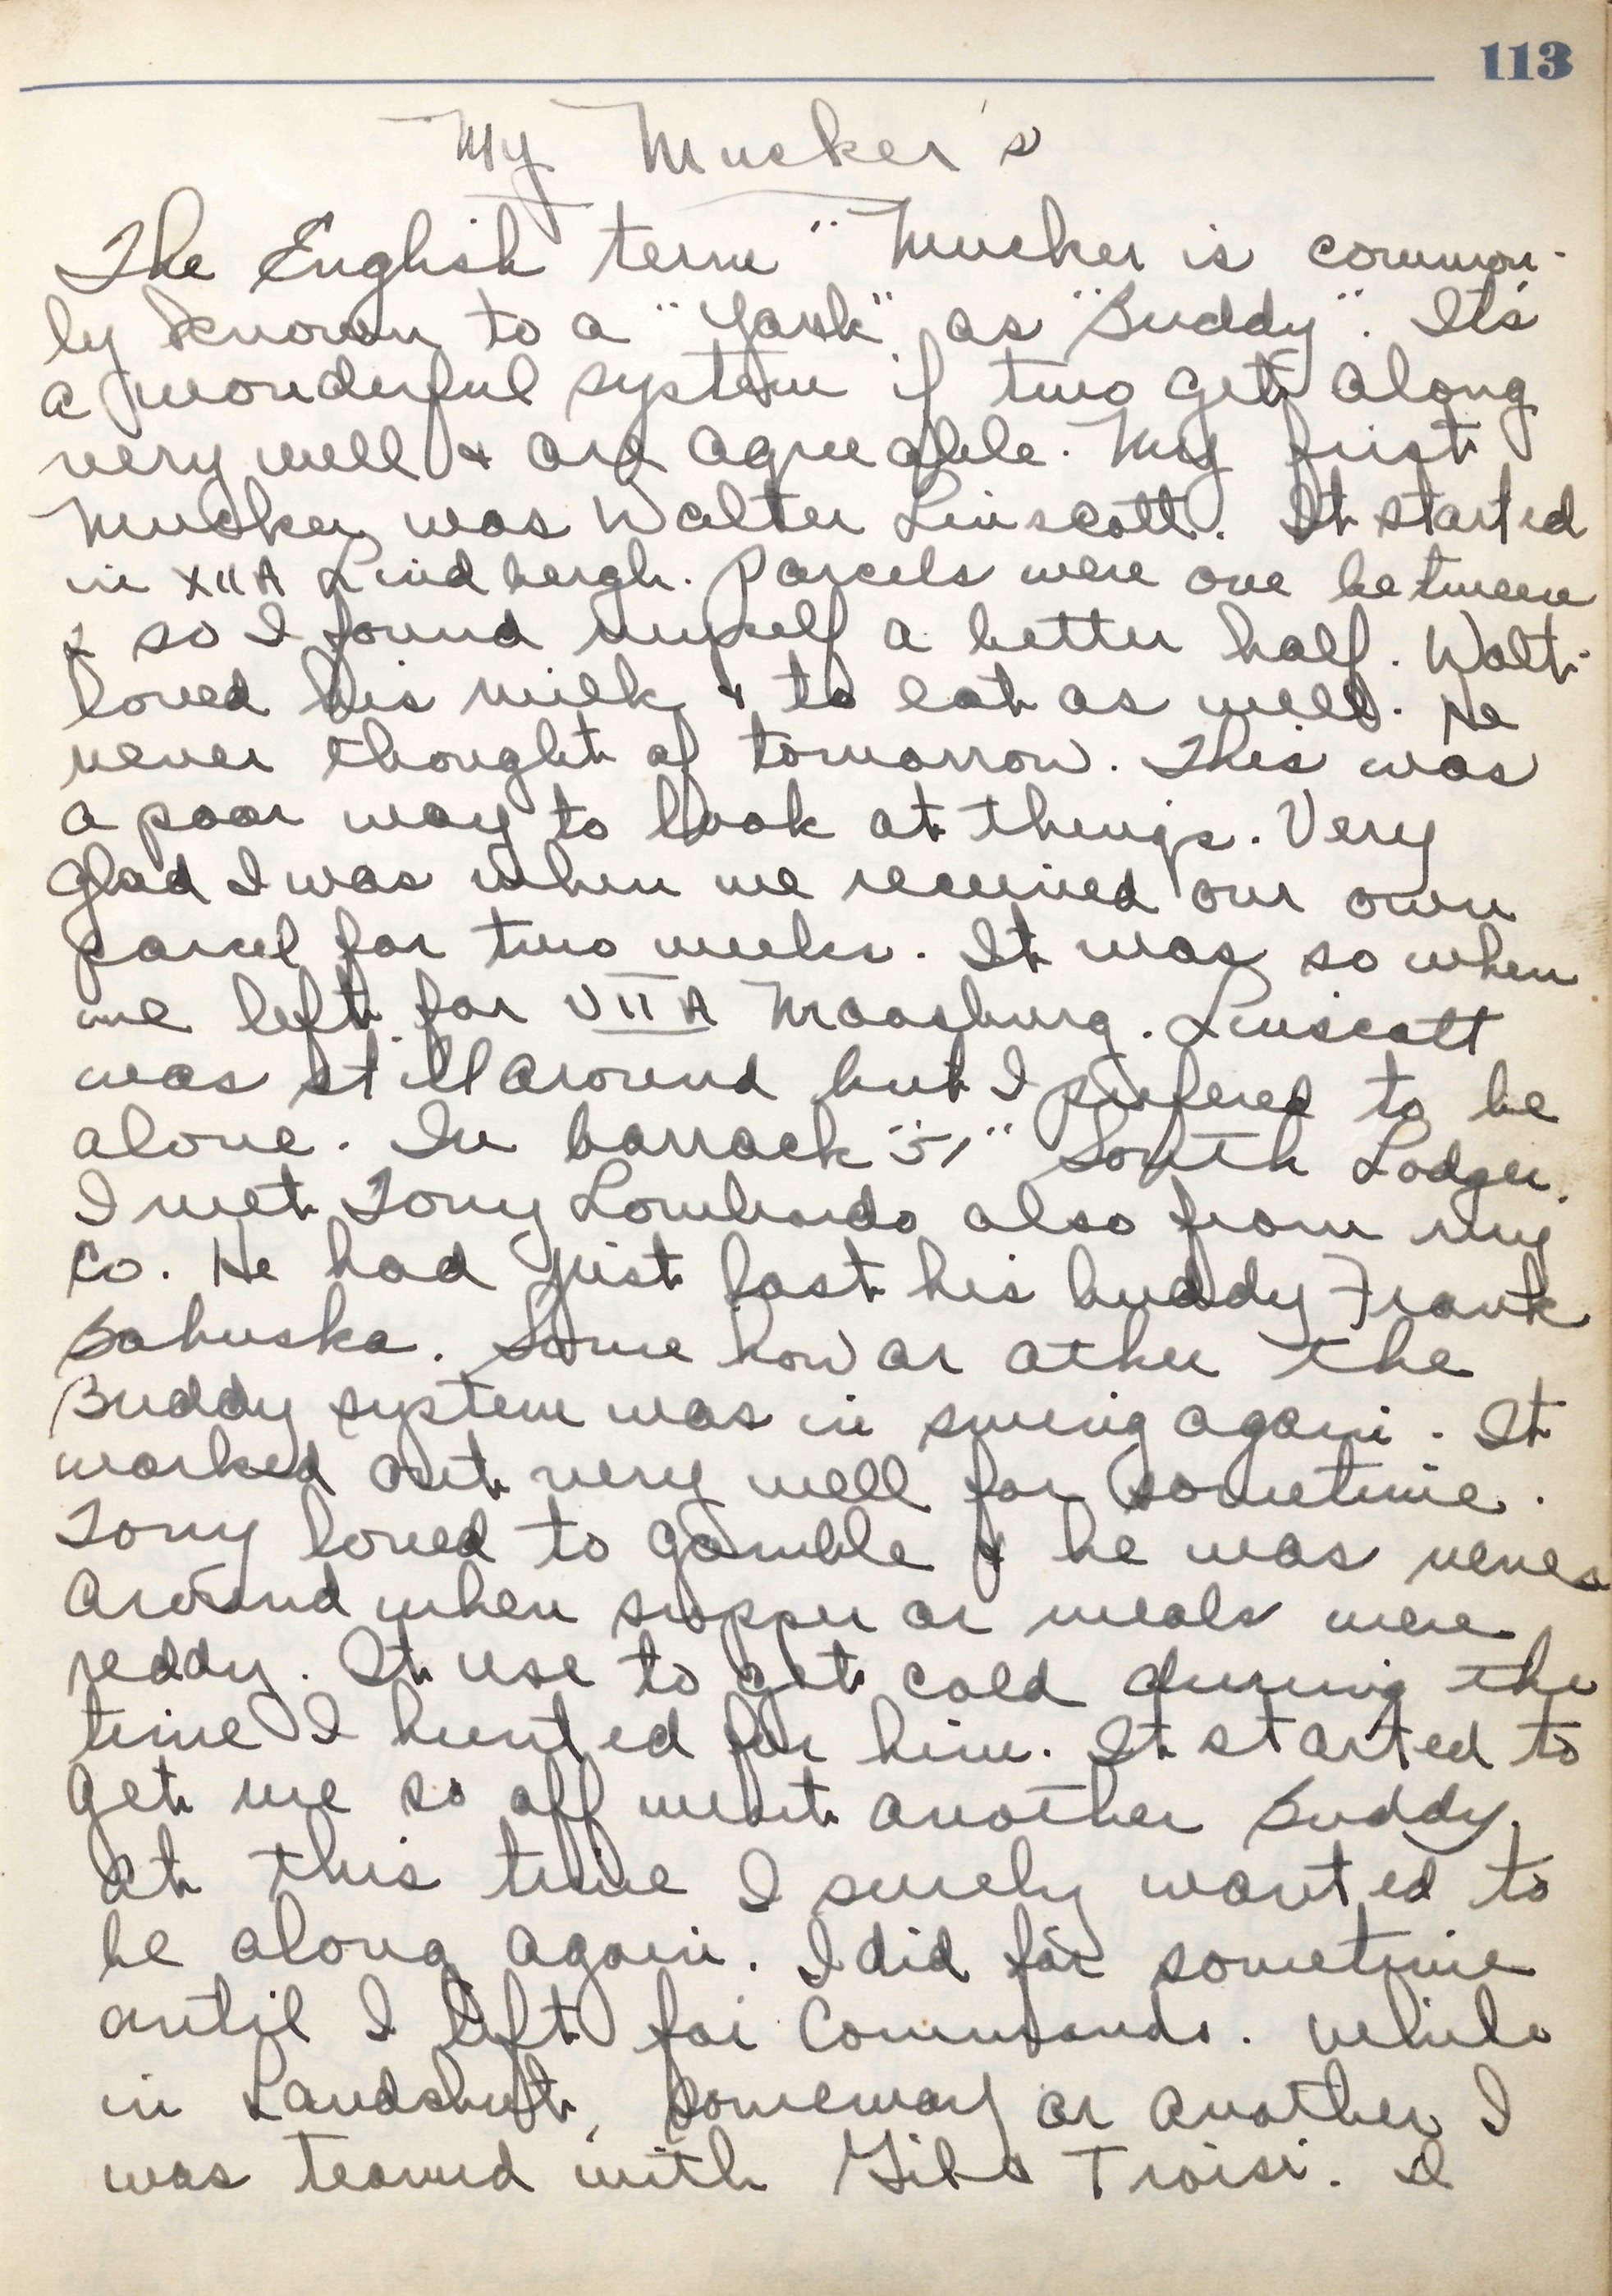 113
My Mucker's
The English term "Mucker is common-
ly known to a "Yank" as "Buddy". It's
a wonderful system if two get along
very well & are agreeable. My first
Mucker was Walter Linscott. It started
in XIIA Lindbergh. Parcels were one between
2 so I found myself a better half. Walt.
loved his milk & to eat as well. He
never thought of tomorrow. This was
a poor way to look at things. Very
glad I was when we received our own
parcel for two weeks. It was so when
we left for VIIA Moosburg. Linscott
was still around but I prefered to be
alone. In barrack "51" South Lodger.
I met Tony Lombardo also from my
Co. He had just lost his buddy Frank
Babuska. Some how or other the
Buddy system was in swing again. It
worked out very well for sometime.
Tony loved to gamble & he was never
around when supper or meals were
reddy. It use to get cold during the
time I hunted for him. It started to
get me so off went another Buddy.
At this time I surely wanted to
be along again. I did for sometime
until I left for Commando. While
in Landshut, someway or another I
was teamed with Troisi. I